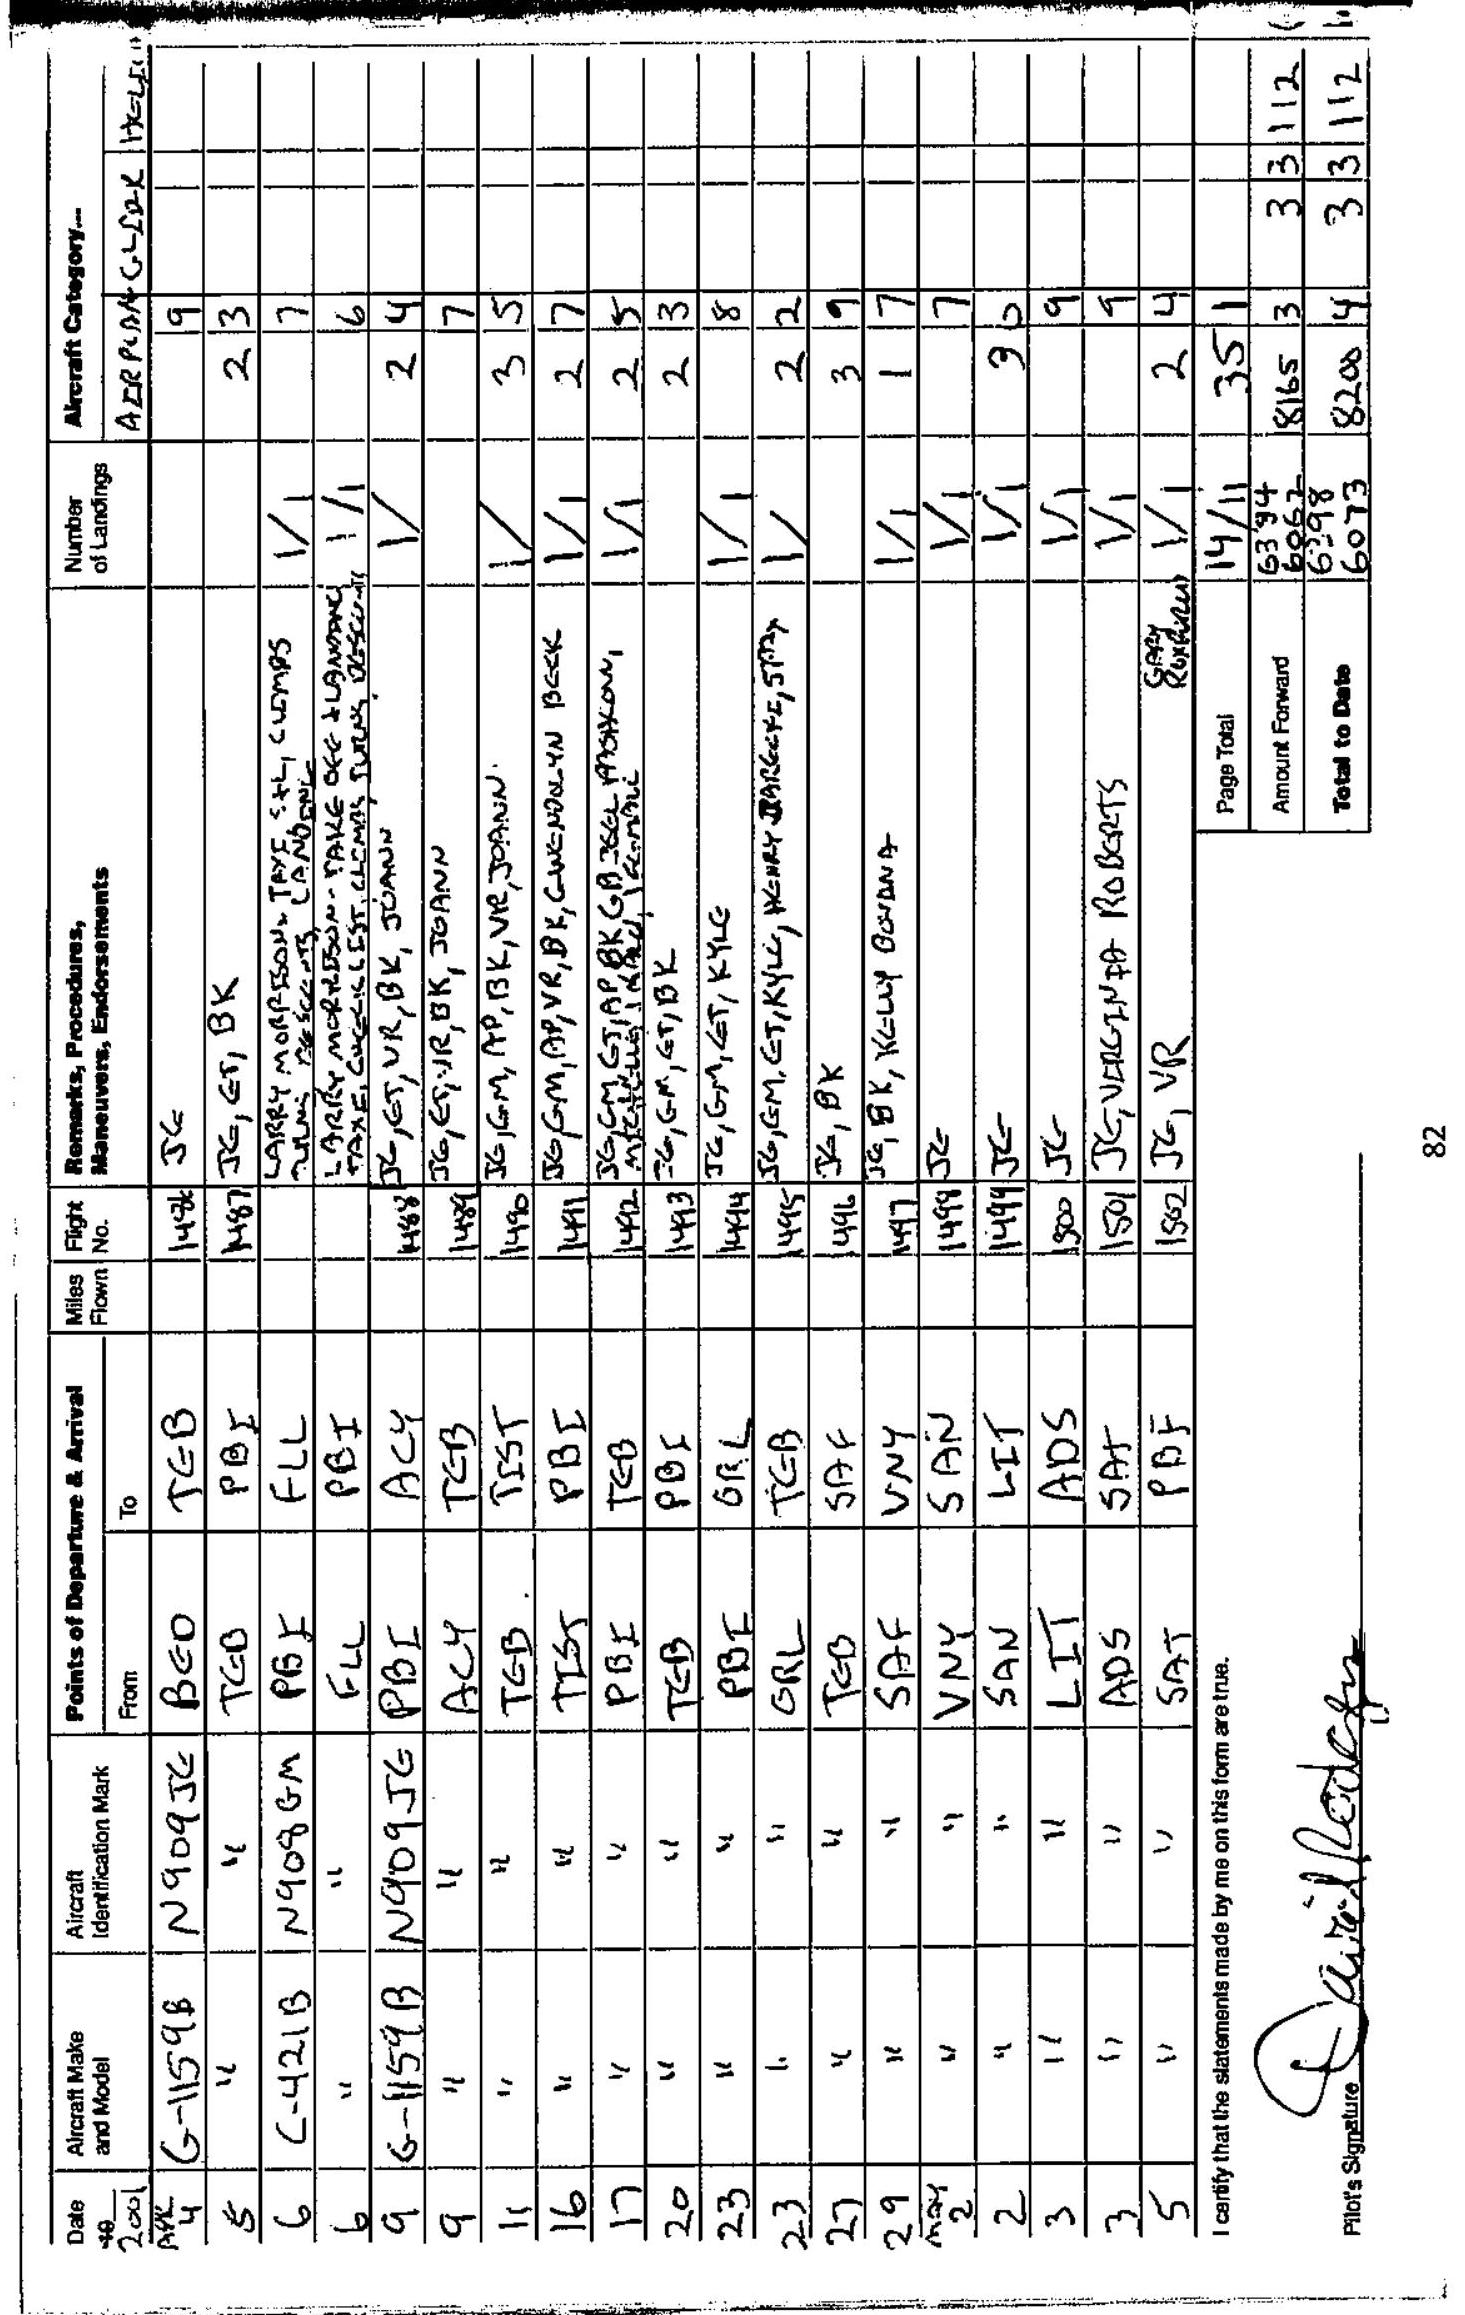 Date 19 2001 | Aircraft Make and Model | Aircraft Identification Mark | Points of Departure & Arrival From | To | Miles Flown | Flight No. | Remarks, Procedures, Maneuvers, Endorsements | Number of Landings | Aircraft Category... AIRPLAN | GLIDR | HELI
APR 4 | G-1159B | N909JE | BED | TEB | 1486 | JE | 9
5 | " | " | TEB | PBI | 1487 | JE, ET, BK | 2 3
6 | C-421B | N908GM | PBI | FLL | LARRY MORRISON, TAXI, S+L, CLIMBS TURNS DESCENTS, LANDING | 1/1 | 7
6 | " | " | FLL | PBI | LARRY MORRISON - TAKE OFF & LANDING TAXI, CHECKLIST, CLIMBS, TURNS, DESCENTS | 1/1 | 6
9 | G-1159B | N909JE | PBI | ACY | 1488 | JE, ET, VR, BK, JOANN | 1/ | 2 4
9 | " | " | ACY | TEB | 1489 | JE, ET, VR, BK, JOANN | 7
11 | " | " | TEB | TIST | 1490 | JE, GM, AP, BK, VR, JOANN | 1/ | 3 5
16 | " | " | TIST | PBI | 1491 | JE, GM, AP, VR, BK, GWENDOLYN BECK | 1/1 | 2 7
17 | " | " | PBI | TEB | 1492 | JE, GM, ET, AP, BK, GB, 1 FEMALE | 1/1 | 2 5
20 | " | " | TEB | PBI | 1493 | JE, GM, ET, BK | 2 3
23 | " | " | PBI | ORL | 1494 | JE, GM, ET, KYLE | 1/1 | 8
23 | " | " | ORL | TEB | 1495 | JE, GM, ET, KYLE, HENRY JARECKI, | 1/ | 2 2
27 | " | " | TEB | SAF | 1496 | JE, BK | 3 9
29 | " | " | SAF | VNY | 1497 | JE, BK, KELLY BOVINA | 1/1 | 1 7
MAY 2 | " | " | VNY | SAN | 1498 | JE | 1/1 | 7
2 | " | " | SAN | LIT | 1499 | JE | 1/1 | 3 0
3 | " | " | LIT | ADS | 1500 | JE | 1/1 | 9
3 | " | " | ADS | SAT | 1501 | JE, VIRGINIA ROBERTS | 1/1 | 9
5 | " | " | SAT | PBI | 1502 | JE, VR GARY ROXBURGH | 1/1 | 2 4
I certify that the statements made by me on this form are true. | Page Total | 14/11 | 35 1
Amount Forward | 6384 6062 | 8165 3 | 3 3 | 112
Pilot's Signature David Rodgers | Total to Date | 6398 6073 | 8200 4 | 3 3 | 112
82